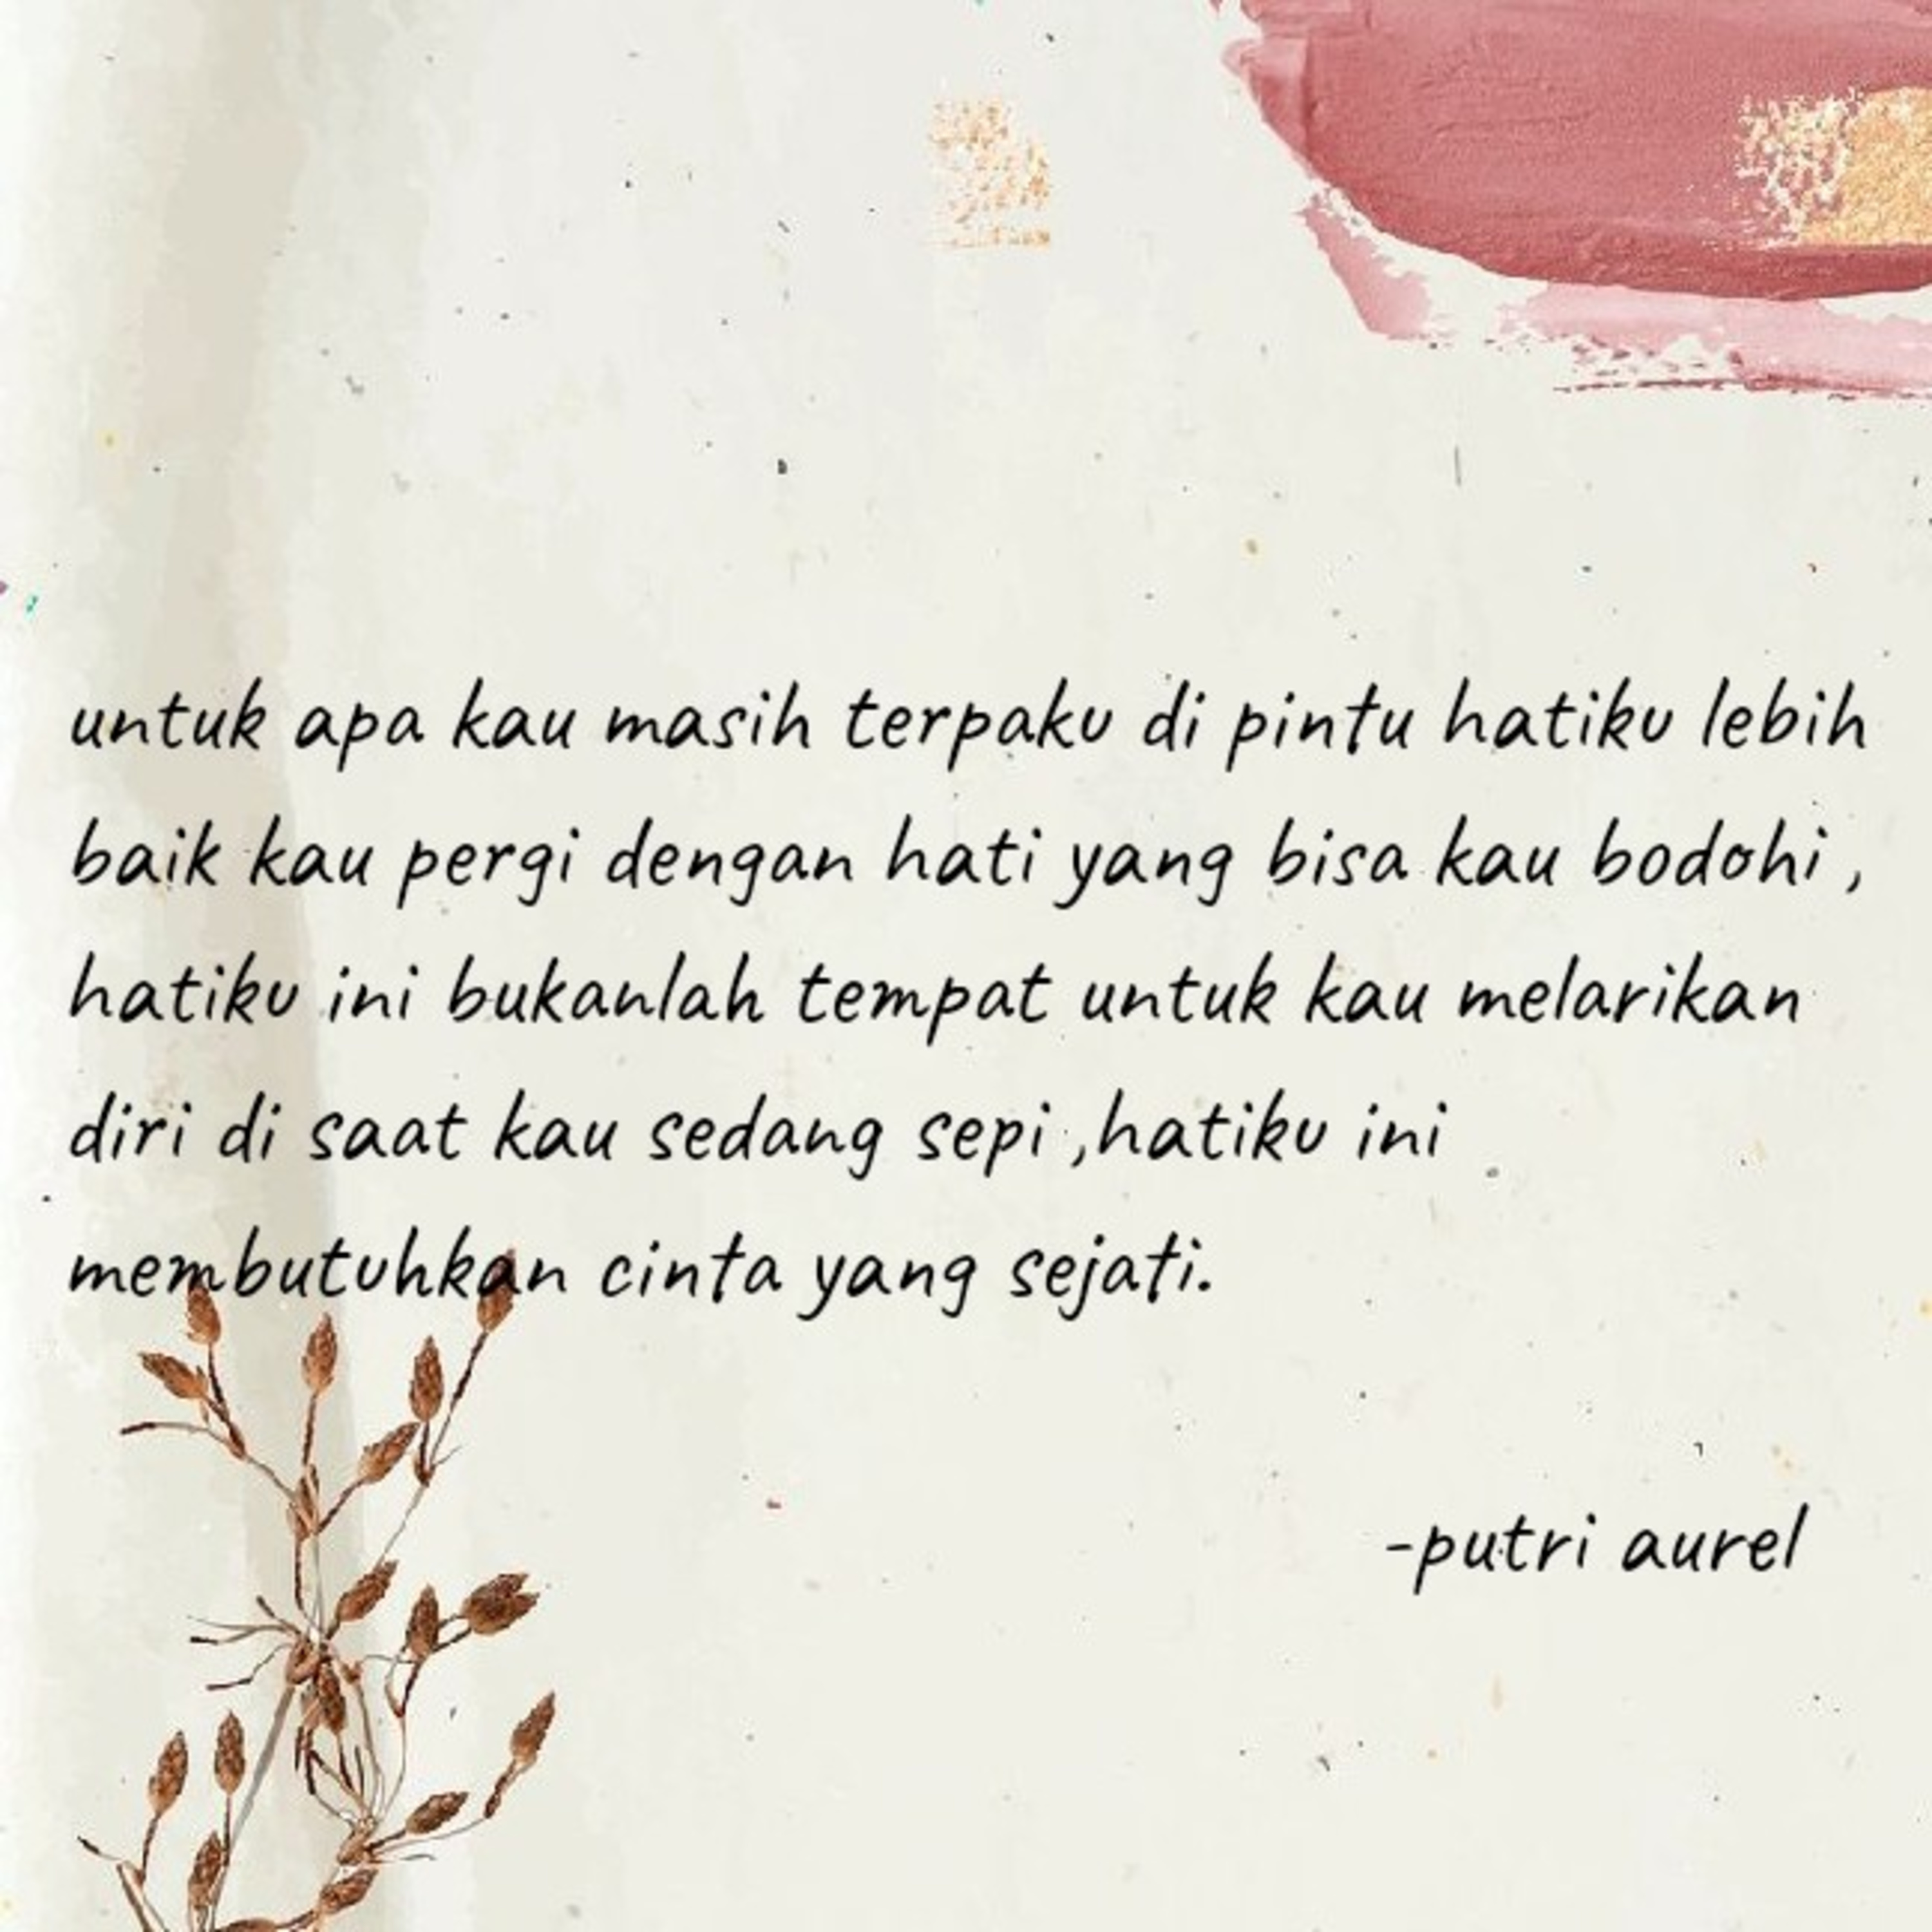 untuk apa kau masih terpaku di pintu hatiku lebih
baik kau pergi dengan hati yang bisa kau bodohi ,
hatiku ini bukanlah tempat untuk kau melarikan
diri di saat kau sedang sepi ,hatiku ini
membutuhkan cinta yang sejati.
-putri aurel